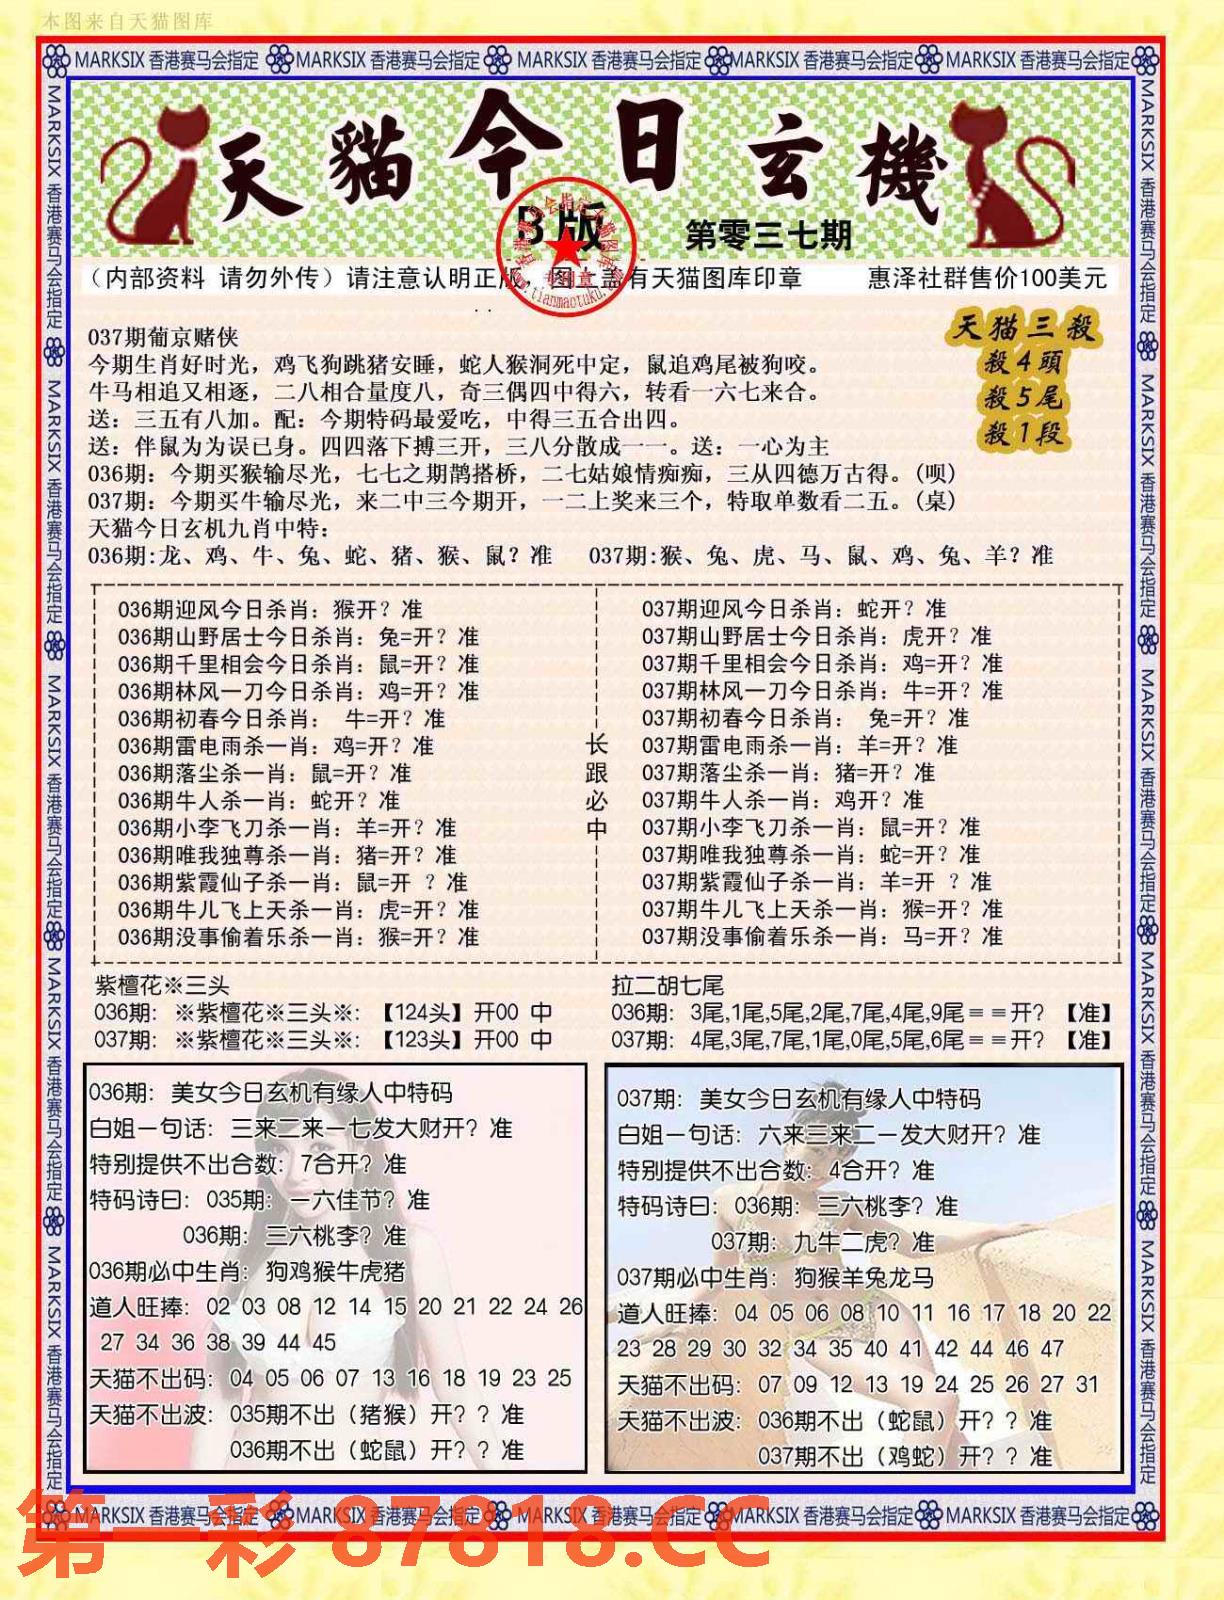 本图来自天猫图库
MARKSIX 香港赛马会指定 MARKSIX 香港赛马会指定 MARKSIX 香港赛马会指定 MARKSIX 香港赛马会指定 MARKSIX 香港赛马会指定
天貓今日玄機
B版
第零三七期
（内部资料 请勿外传）请注意认明正版 图上盖有天猫图库印章 惠泽社群售价100美元
天猫三殺
殺4頭
殺5尾
殺1段
037期葡京赌侠
今期生肖好时光，鸡飞狗跳猪安睡，蛇人猴洞死中定，鼠追鸡尾被狗咬。
牛马相追又相逐，二八相合量度八，奇三偶四中得六，转看一六七来合。
送：三五有八加。配：今期特码最爱吃，中得三五合出四。
送：伴鼠为为误已身。四四落下搏三开，三八分散成一一。送：一心为主
036期：今期买猴输尽光，七七之期鹊搭桥，二七姑娘情痴痴，三从四德万古得。(呗)
037期：今期买牛输尽光，来二中三今期开，一二上奖来三个，特取单数看二五。(桌)
天猫今日玄机九肖中特：
036期:龙、鸡、牛、兔、蛇、猪、猴、鼠？准 037期:猴、兔、虎、马、鼠、鸡、兔、羊？准
036期迎风今日杀肖：猴开？准
036期山野居士今日杀肖：兔=开？准
036期千里相会今日杀肖：鼠=开？准
036期林风一刀今日杀肖：鸡=开？准
036期初春今日杀肖： 牛=开？准
036期雷电雨杀一肖：鸡=开？准
036期落尘杀一肖：鼠=开？准
036期牛人杀一肖：蛇开？准
036期小李飞刀杀一肖：羊=开？准
036期唯我独尊杀一肖：猪=开？准
036期紫霞仙子杀一肖：鼠=开 ？准
036期牛儿飞上天杀一肖：虎=开？准
036期没事偷着乐杀一肖：猴=开？准
长跟必中
037期迎风今日杀肖：蛇开？准
037期山野居士今日杀肖：虎开？准
037期千里相会今日杀肖：鸡=开？准
037期林风一刀今日杀肖：牛=开？准
037期初春今日杀肖： 兔=开？准
037期雷电雨杀一肖：羊=开？准
037期落尘杀一肖：猪=开？准
037期牛人杀一肖：鸡开？准
037期小李飞刀杀一肖：鼠=开？准
037期唯我独尊杀一肖：蛇=开？准
037期紫霞仙子杀一肖：羊=开 ？准
037期牛儿飞上天杀一肖：猴=开？准
037期没事偷着乐杀一肖：马=开？准
紫檀花※三头
036期：※紫檀花※三头※:【124头】开00 中
037期：※紫檀花※三头※:【123头】开00 中
拉二胡七尾
036期：3尾,1尾,5尾,2尾,7尾,4尾,9尾＝＝开？【准】
037期：4尾,3尾,7尾,1尾,0尾,5尾,6尾＝＝开？【准】
036期：美女今日玄机有缘人中特码
白姐一句话：三来二来一七发大财开？准
特别提供不出合数：7合开？准
特码诗曰：035期：一六佳节？准
036期：三六桃李？准
036期必中生肖：狗鸡猴牛虎猪
道人旺捧：02 03 08 12 14 15 20 21 22 24 26
27 34 36 38 39 44 45
天猫不出码：04 05 06 07 13 16 18 19 23 25
天猫不出波：035期不出（猪猴）开？？准
036期不出（蛇鼠）开？？准
037期：美女今日玄机有缘人中特码
白姐一句话：六来三来二一发大财开？准
特别提供不出合数：4合开？准
特码诗曰：036期：三六桃李？准
037期：九牛二虎？准
037期必中生肖：狗猴羊兔龙马
道人旺捧：04 05 06 08 10 11 16 17 18 20 22
23 28 29 30 32 34 35 40 41 42 44 46 47
天猫不出码：07 09 12 13 19 24 25 26 27 31
天猫不出波：036期不出（蛇鼠）开？？准
037期不出（鸡蛇）开？？准
MARKSIX 香港赛马会指定 MARKSIX 香港赛马会指定 MARKSIX 香港赛马会指定 MARKSIX 香港赛马会指定 MARKSIX 香港赛马会指定
第一彩 87818.CC
MARKSIX 香港赛马会指定 MARKSIX 香港赛马会指定 MARKSIX 香港赛马会指定 MARKSIX 香港赛马会指定 MARKSIX 香港赛马会指定
MARKSIX 香港赛马会指定 MARKSIX 香港赛马会指定 MARKSIX 香港赛马会指定 MARKSIX 香港赛马会指定 MARKSIX 香港赛马会指定